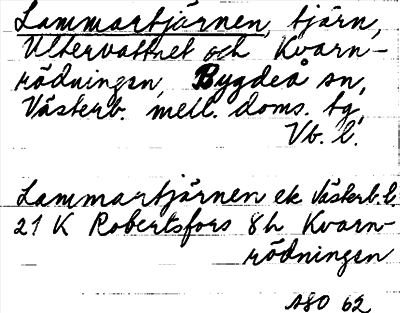 Lammartjärnen, tjärn,
Ultervattnet och Kvarn-
rödningen, Bygdeå sn,
Västerb. mell. doms. tg,
Vb. l.
Lammartjärnen ek Västerb. l.
21 K Robertsfors 8h Kvarn-
rödningen
ASO 62